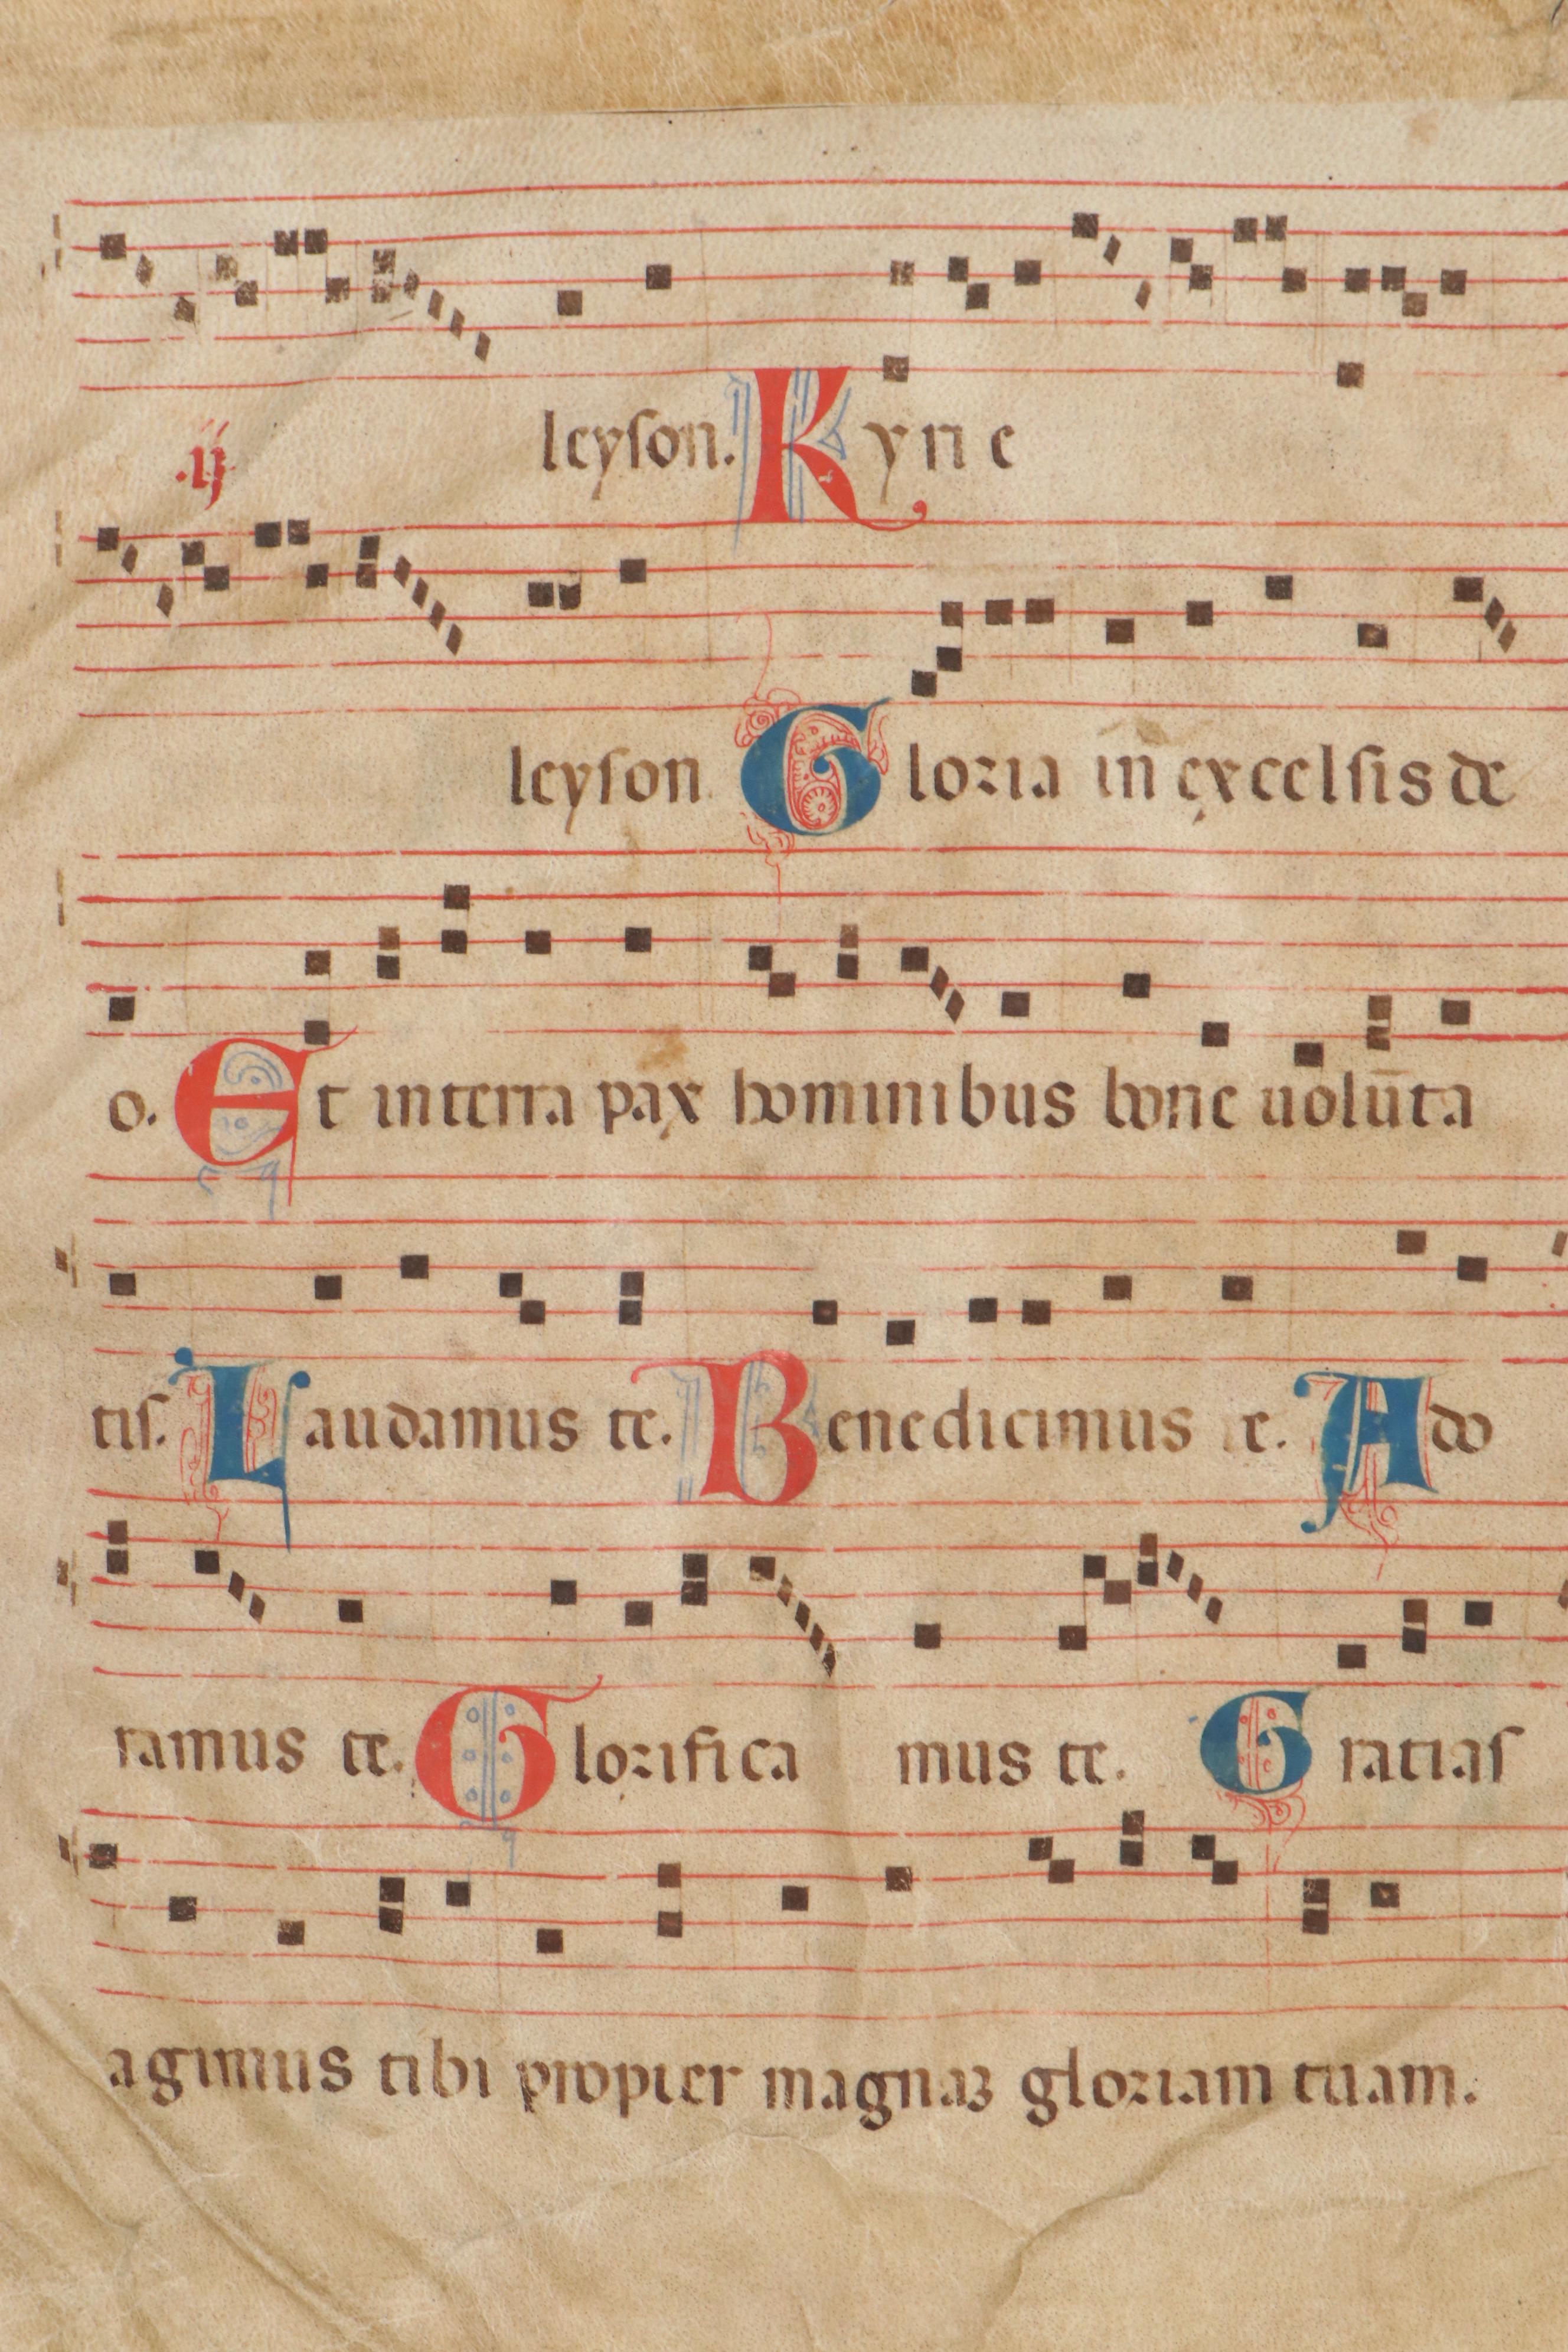 .ij leyson. Kyrie
leyson Gloria in excelsis de
o. Et in terra pax hominibus bone uolūta
tiſ. Laudamus te. Benedicimus te. Ado
ramus te. Glorifica mus te. Gratiaſ
agimus tibi propter magnaʒ gloriam tuam.